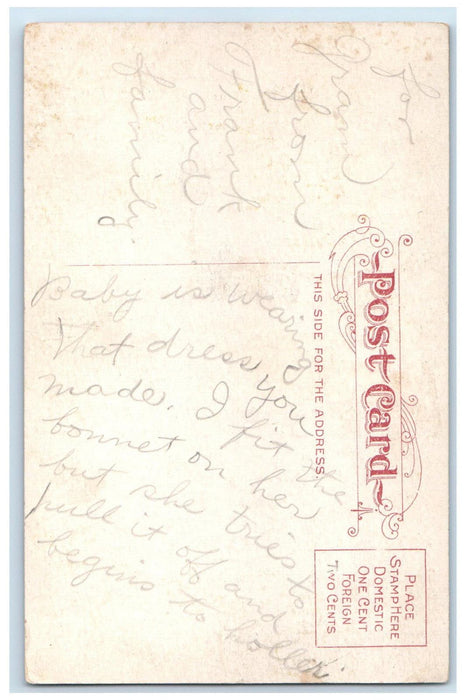 For
Gram
from
Frank
and
family
Post Card
THIS SIDE FOR THE ADDRESS.
PLACE
STAMP HERE
DOMESTIC
ONE CENT
FOREIGN
TWO CENTS
Baby is wearing
that dress you
made. I fit the
bonnet on her
but she tries to
pull it off and
begins to holler.